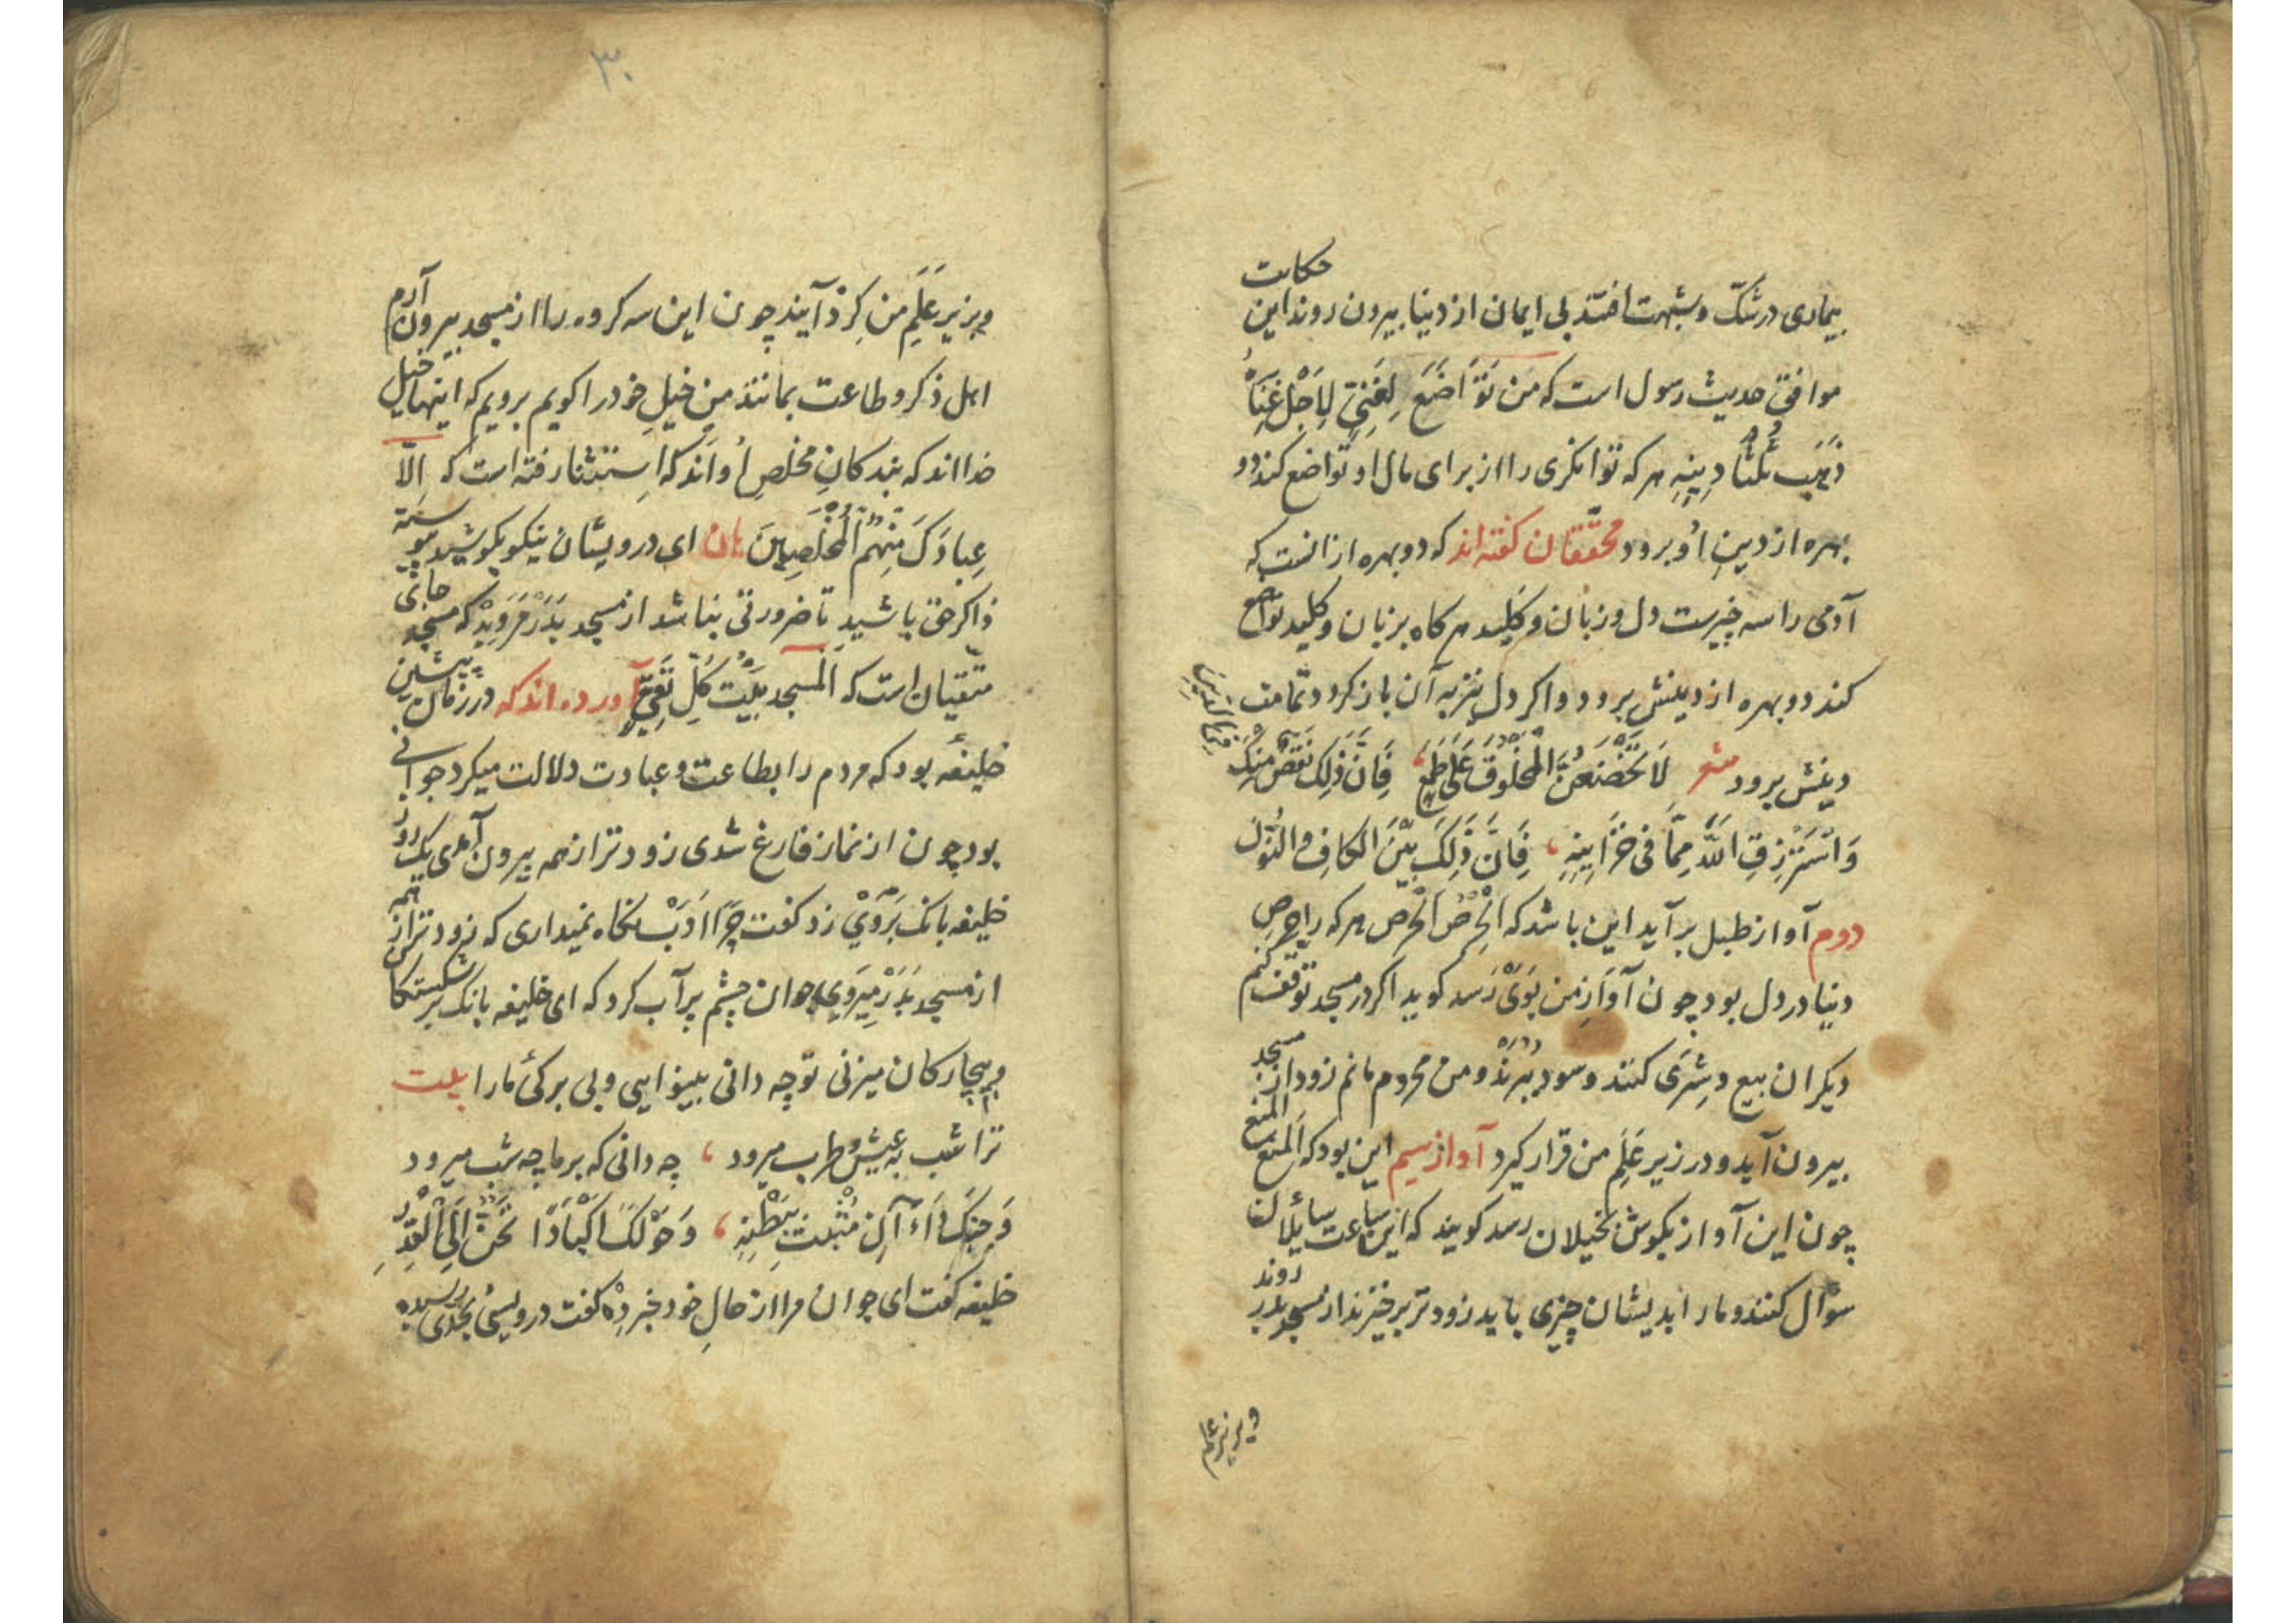 بیماری در شکّ و شبهت افتند بی ایمان از دنیا بیرون روند این حکایت
موافق حدیث رسول است که من تَوَاضَعَ لِغَنِیٍّ لِاَجْلِ غِنَاهُ
ذَهَبَ ثُلُثَا دِینِهِ هر که توانکری را از برای مال او تواضع کند دو
بهره از دینِ اُو برود محقّقان کفته‌اند که دو بهره از انست که
آدمی را سه چیزست دل و زبان و کلید هر کاه بزبان و کلید تواضع
کند دو بهره از دینش برود و اکر دل نیز به آن باز کردد تمامت
دینش برود شعر لَا تَخْضَعَنَّ لمَخْلُوقٍ عَلَی طَمَعٍ ، فَاِنَّ ذَلِکَ نَقْصٌ مِنْکَ فی الدِّینِ
وَاسْتَرْزِقِ اللّٰهَ مِمَّا فی خَزَایِنِهِ ، فَاِنَّ ذَلِکَ بَیْنَ الکافِ و النُّونِ
دوم آواز طبل بر آید این باشد که اَلْحِرْصُ اَلْحِرص هر که را حرصِ
دنیا در دل بود چون آوازِ من بَوَیْ رَسد کوید اکر در مسجد توقف کنم
دیکران بیع و شِرَی کنند و سود بَرَنْد و من محروم مانم زود از مسجد
بیرون آید و در زیرِ عَلَمِ من قرار کیرد آواز سیم این بود که اَلْمَنْع المنع
چون این آواز بکوش بخیلان رسد کویند که این ساعت سایٔلان
سؤال کنند و ما را بدیشان چیزی باید زودتر برخیزند از مسجد بدر روند
و بزیر علم
۳۰
و بزیرِ عَلَمِ من کِرْد آیند چون این سه کروه را از مسجد بیرون آرم
اهل ذکر و طاعت بمانند من خیلِ خود را کویم برویم که اینها خیل
خدااند که بندکانِ مخلصِ اُواند که اِستثنا رفته است که اِلّا
عِبادَکَ مِنْهُمُ الْمُخْلَصِینَ هان ای درویشان نیکو بکوشید پیوسته
ذاکر حق باشیدِ تا ضرورتی نباشد از مسجد بَدَرْ مَرَوِیْد که مسجد جای
متّقیان است که اَلْمَسجد بَیْتُ کُلِّ تَقِیٍّ آورده‌اند که در زمان پیشین
خلیفهٔ بود که مردم را بطاعت و عبادت دلالت میکرد جوانی
بود چون از نماز فارغ شدی زودتر از همه بیرون آمدی یک روز
خلیفه بانک بَرْ وَیْ زد کفت چِرَا اَدَبْ نکاه نمیداری که زودتر از همه
از مسجد بَدَرْ میرَوِی جوان چشم پر آب کرد که ای خلیفه بانک بر شکستکا
و بیچارکان میزنی تو چه دانی بینوایی و بی برکیٔ ما را بیت
ترا شب به عیش و طرب میرود ، چه دانی که بر ما چه شب میرود
وَ حَوْلَکَ اَکْبَادًا تَحِنُّ اِلَی الْقِدِّ
خلیفه کفت ای جوان مرا از حالِ خود خبر دِهْ کفت درویشیٔ بحدّی رسیده